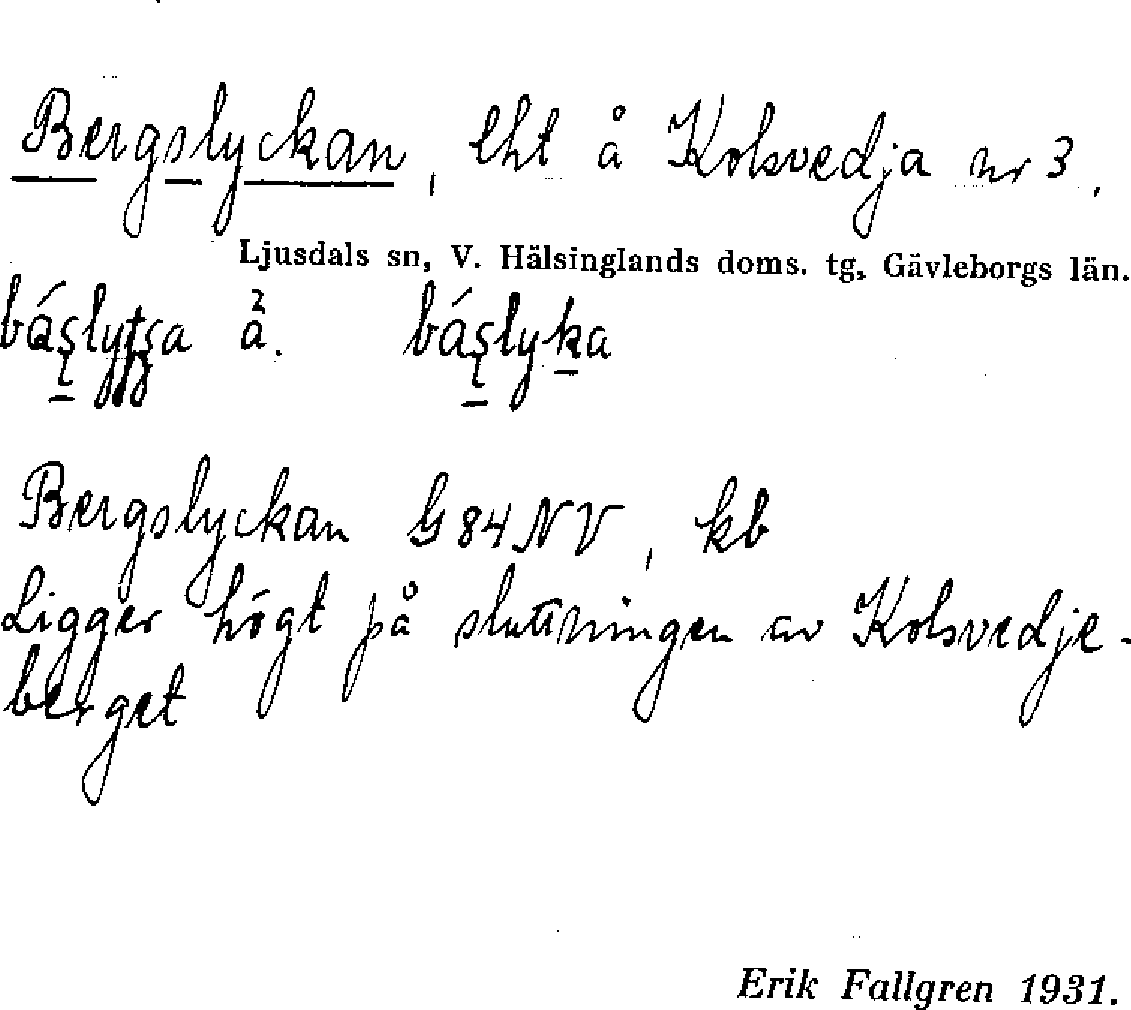 Bergslyckan, lht å Kolsvedja nr 3.
Ljusdals sn, V. Hälsinglands doms. tg, Gävleborgs län.
å.
Bergslyckan G84NV, kb
Ligger högt på sluttningen av Kolsvedje-
berget
Erik Fallgren 1931.